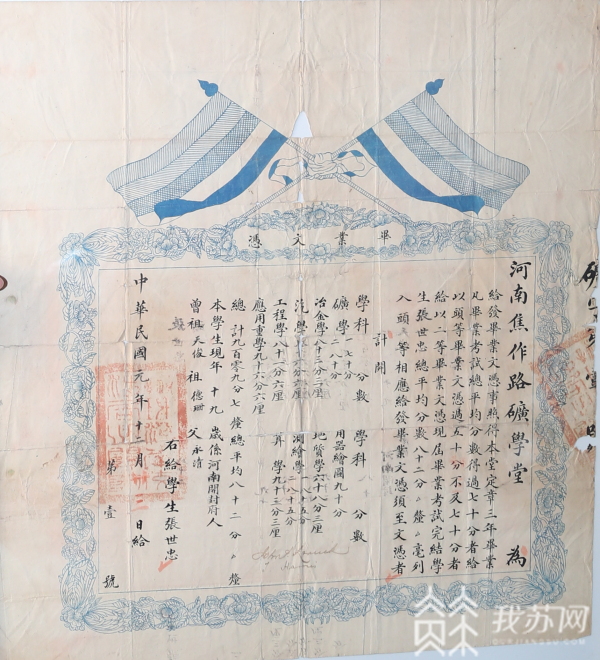 畢業文憑
河南焦作路礦學堂 為
給發畢業文憑事照得本堂定章三年畢業
凡畢業考試總平均分數得過七十分者給
以頭等畢業文憑過五十分不及七十分者
給以二等畢業文憑現屆畢業考試完結學
生張世忠總平均分數八十二分〃釐〃毫列
入頭等相應給發畢業文憑須至文憑者
計開
學科 分數 學科 分數
礦學 用器繪圖九十分
冶金學八十三分二厘 地質學六十八分三厘
測繪學
工程學八十一分六厘 算學九十三分三厘
應用重學九十六分六厘
總計九百零九分七釐總平均八十二分〃釐
本學生現年十九歲係河南開封府人
曾祖天俊 祖德 父永清
右給學生張世忠
中華民國元年十二月 日給
第壹號
我苏网
OURJIANGSU.COM